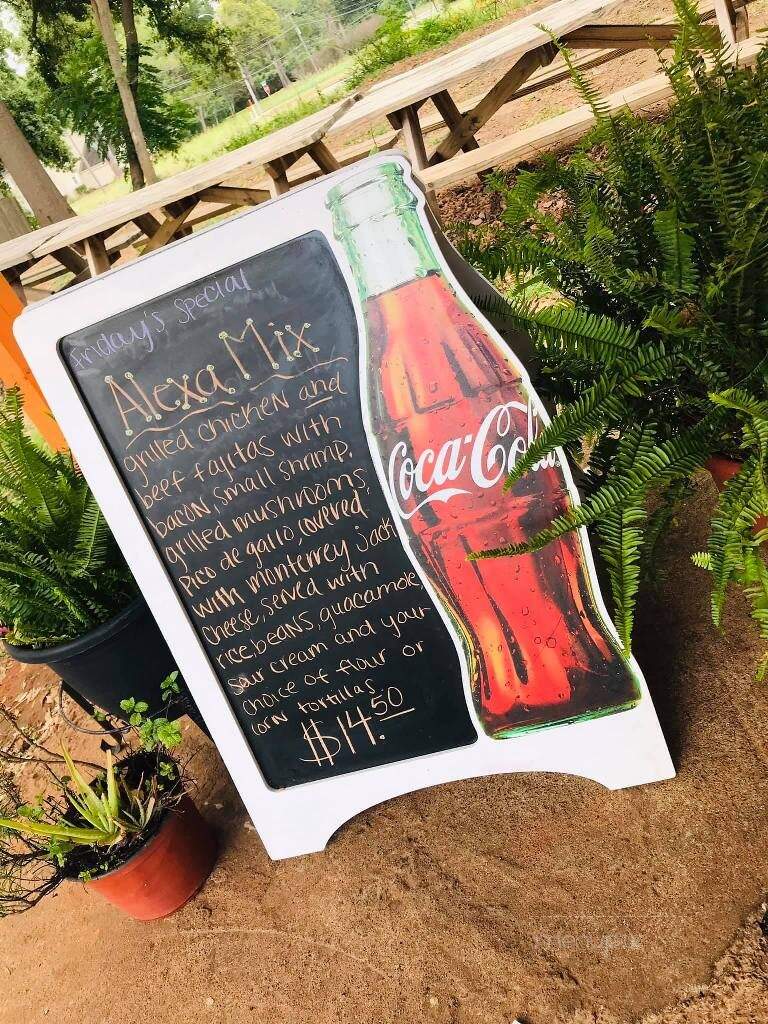 Friday's Special
Alexa Mix
grilled chicken and
beef fajitas with
bacon, small shrimp.
grilled mushrooms
Pico de gallo, covered
with monterrey jack
cheese, served with
rice, beans, guacamole
sour cream and your
choice of flour or
corn tortillas
$14.50
Coca-Cola